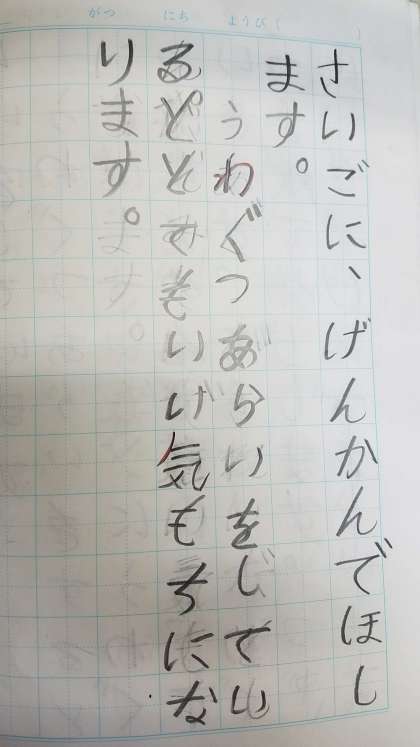 がつ にち ようび( )
さいごに、げんかんでほし
ます。
うわぐつあらいをしてい
るととてもいい気もちにな
ります。